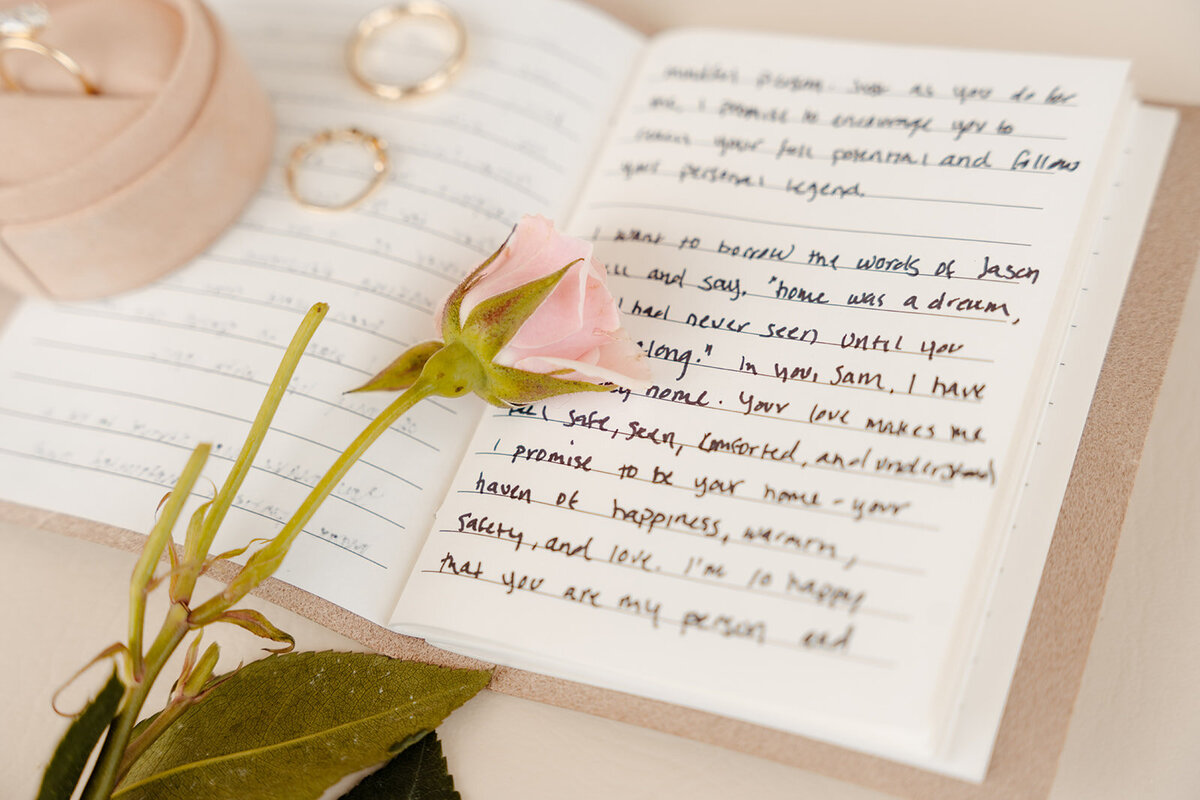 person. Just as you do for
me, I promise to encourage you to
reach your full potential and follow
your personal legend.
I want to borrow the words of Jason
and say, "home was a dream,
I had never seen until you
along." In you, Sam, I have
my home. Your love makes me
feel safe, seen, comforted, and understood
I promise to be your home - your
haven of happiness, warmth,
safety, and love. I'm so happy
that you are my person and